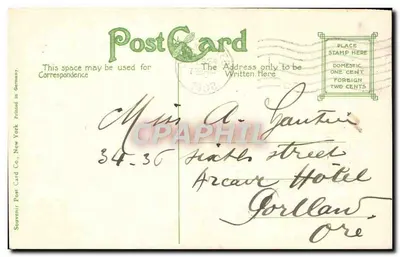 Post Card
This space may be used for
Correspondence
The Address only to be
Written Here
PLACE
STAMP HERE
DOMESTIC
ONE CENT
FOREIGN
TWO CENTS
Souvenir Post Card Co., New York Printed in Germany.
Miss A.
34-36 sixth street
Arcave Hôtel
Portland
Ore
CPArama.com